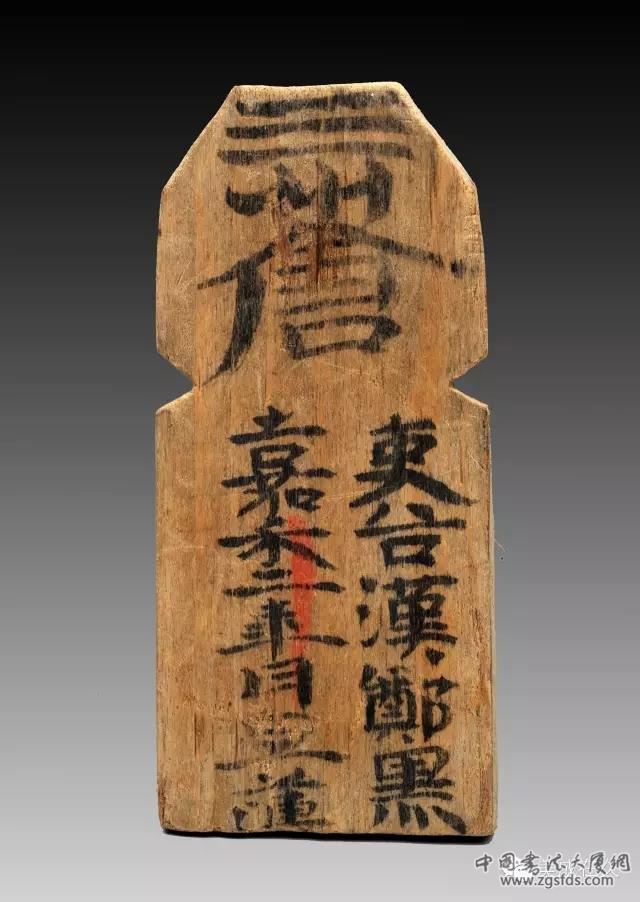 三州倉
吏谷漢、鄭黑
嘉禾二年月旦簿
中國書法大廈網
www.zgsfds.com